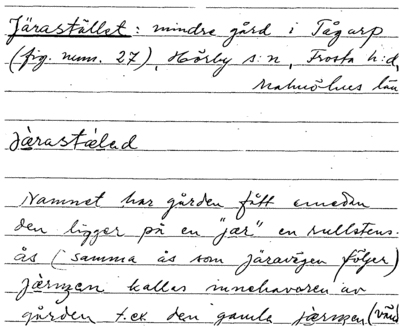 Järastället: mindre gård i Tågarp
(fig. num. 27), Hörby s:n, Frosta h:d,
Malmöhus län
Jàrastælad
Namnet har gården fått emedan
den ligger på en "jær" en rullstens-
ås (samma ås som järavägen följer)
jærnzen kallas innehavaren av
gården t.ex. den gamla jærnzen (vän